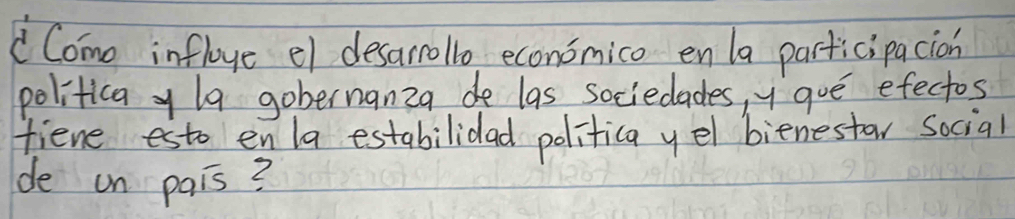 ¿Cómo influye el desarrollo económico en la participación
política y la gobernanza de las sociedades, y qué efectos
tiene esto en la estabilidad política y el bienestar social
de un país?